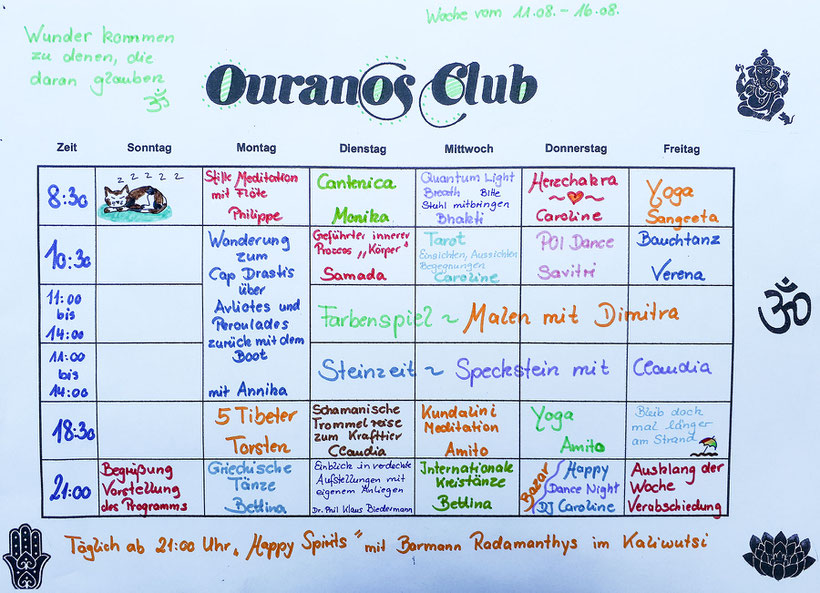 Woche vom 11.08. - 16.08.
Wunder kommen
zu denen, die
daran glauben
ॐ
Ouranos Club
Zeit Sonntag Montag Dienstag Mittwoch Donnerstag Freitag
8:30
z z z z z
Stille Meditation
mit Flöte
Philippe
Cantenica
Monika
Quantum Light
Breath Bitte
Stuhl mitbringen
Bhakti
Herzchakra
Caroline
Yoga
Sangeeta
10:30
Wanderung
zum
Cap Drastis
über
Avliotes und
Peroulades
zurück mit dem
Boot
mit Annika
Geführter innerer
Prozess „Körper"
Samada
Tarot
Einsichten, Aussichten
Begegnungen
Caroline
POI Dance
Savitri
Bauchtanz
Verena
11:00
bis
14:00
Farbenspiel ~ Malen mit Dimitra
ॐ
11:00
bis
14:00
Steinzeit ~ Speckstein mit Claudia
18:30
5 Tibeter
Torsten
Schamanische
Trommelreise
zum Krafttier
Claudia
Kundalini
Meditation
Amito
Yoga
Amito
Bleib doch
mal länger
am Strand
21:00
Begrüßung
Vorstellung
des Programms
Griechische
Tänze
Bettina
Einblicke in verdeckte
Aufstellungen mit
eigenem Anliegen
Dr. Phil Klaus Biedermann
Internationale
Kreistänze
Bettina
Bazar
Happy
Dance Night
DJ Caroline
Ausklang der
Woche
Verabschiedung
Täglich ab 21:00 Uhr „Happy Spirits" mit Barmann Radamanthys im Kaliwutsi
1